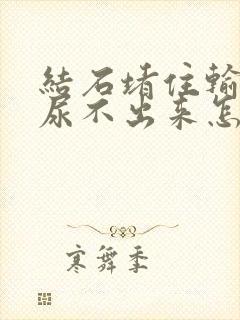 結石堵住輸
尿不出来怎
寒舞季